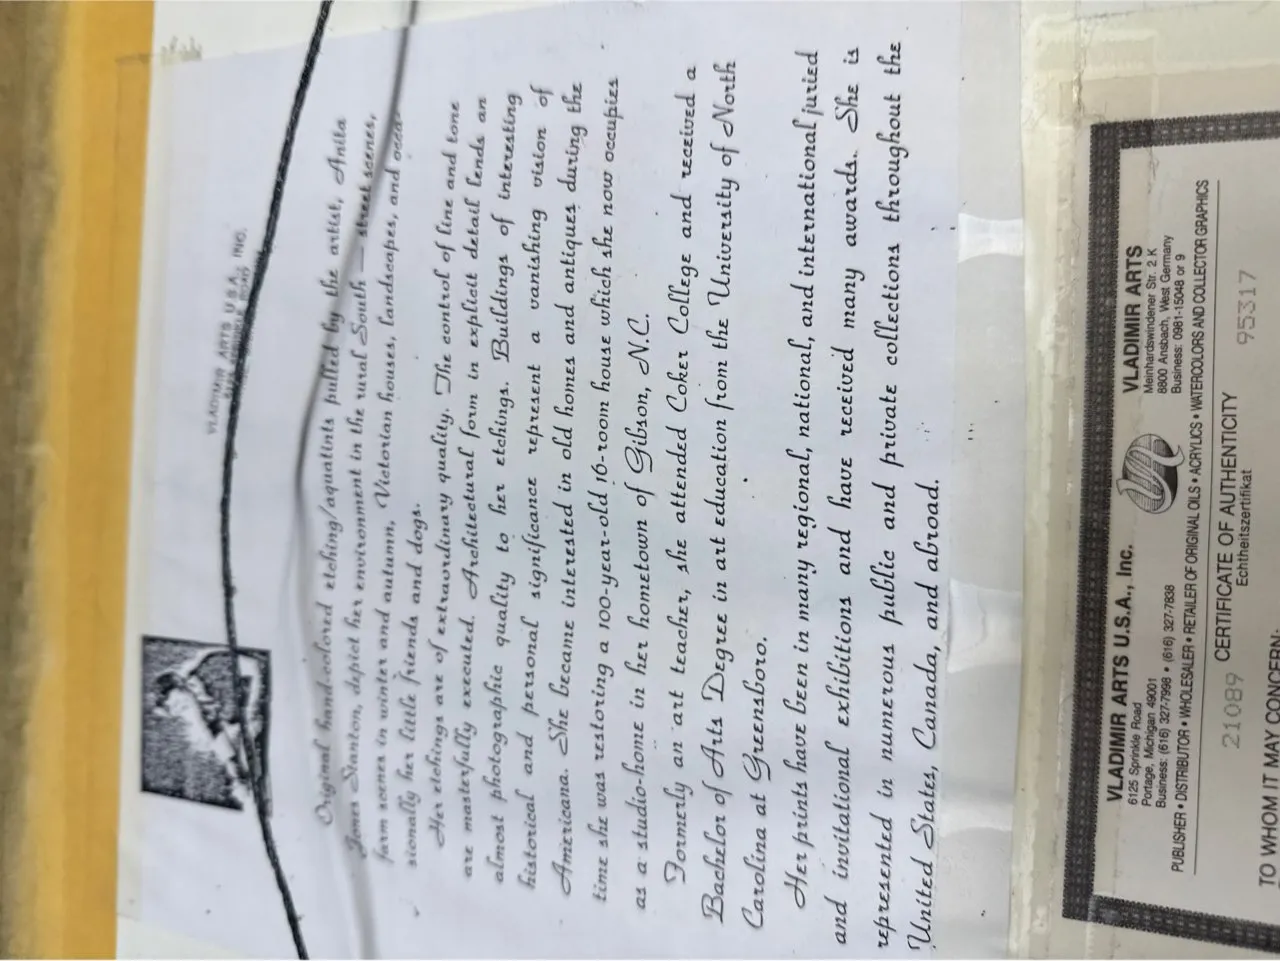 VLADIMIR ARTS U.S.A., INC.
Original hand-colored etching/aquatints pulled by the artist, Anita
Jones Stanton, depict her environment in the rural South — street scenes,
farm scenes in winter and autumn, Victorian houses, landscapes, and occa-
sionally her little friends and dogs.
Her etchings are of extraordinary quality. The control of line and tone
are masterfully executed. Architectural form in explicit detail lends an
almost photographic quality to her etchings. Buildings of interesting
historical and personal significance represent a vanishing vision of
Americana. She became interested in old homes and antiques during the
time she was restoring a 100-year-old 16-room house which she now occupies
as a studio-home in her hometown of Gibson, N.C.
Formerly an art teacher, she attended Coker College and received a
Bachelor of Arts Degree in art education from the University of North
Carolina at Greensboro.
Her prints have been in many regional, national, and international juried
and invitational exhibitions and have received many awards. She is
represented in numerous public and private collections throughout the
United States, Canada, and abroad.
VLADIMIR ARTS U.S.A., Inc.
6125 Sprinkle Road
Portage, Michigan 49001
Business: (616) 327-7998 • (616) 327-7838
VLADIMIR ARTS
Meinhardswindener Str. 2 K
8800 Ansbach, West Germany
Business: 0981-15048 or 9
PUBLISHER • DISTRIBUTOR • WHOLESALER • RETAILER OF ORIGINAL OILS • ACRYLICS • WATERCOLORS AND COLLECTOR GRAPHICS
21089 CERTIFICATE OF AUTHENTICITY 95317
Echtheitszertifikat
TO WHOM IT MAY CONCERN: